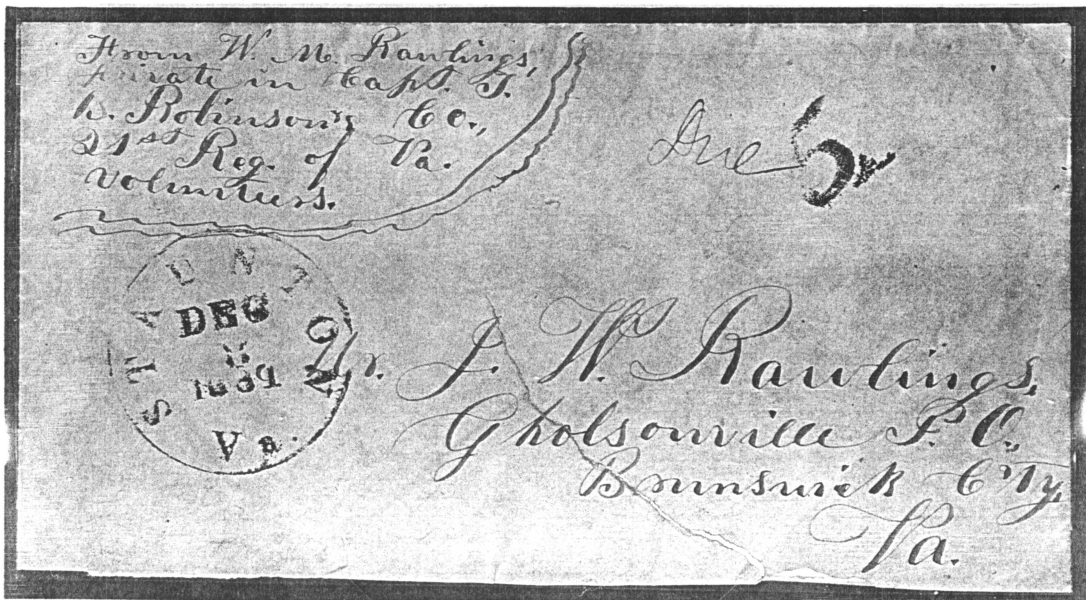 From W. M. Rawlings,
Private in Capt. T.
D. Robinson's Co.,
21st Reg. of Va.
Volunteers.
Due 5
STAUNTON
DEC
Va.
Mr. J. W. Rawlings,
Gholsonville P. O.,
Brunswick C'ty,
Va.